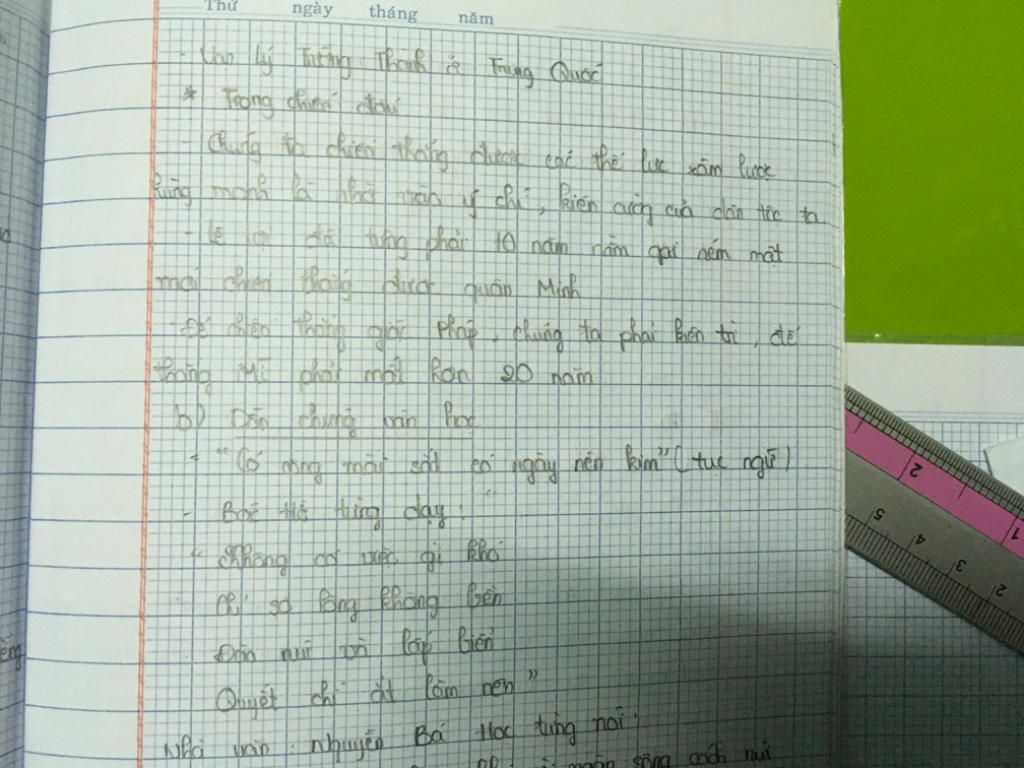 Thứ ngày tháng năm
- Vạn lý Trường Thành ở Trung Quốc
* Trong chiến đấu
- Chúng ta chiến thắng được các thế lực xâm lược
hùng mạnh là nhờ vào ý chí, kiên cường của dân tộc ta
- Lê Lợi đã từng phải 10 năm nằm gai nếm mật
mới chiến thắng được quân Minh
- Để chiến thắng giặc Pháp, chúng ta phải kiên trì, để
thắng Mĩ phải mất hơn 20 năm
b) Dẫn chứng văn học
+ "Có công mài sắt có ngày nên kim" (tục ngữ)
- Bác Hồ từng dạy:
"Không có việc gì khó
Chỉ sợ lòng không bền
Đào núi và lấp biển
Quyết chí ắt làm nên"
Nhà văn Nguyễn Bá Học từng nói:
ngăn sông cách núi
2
1
5
4
3
2